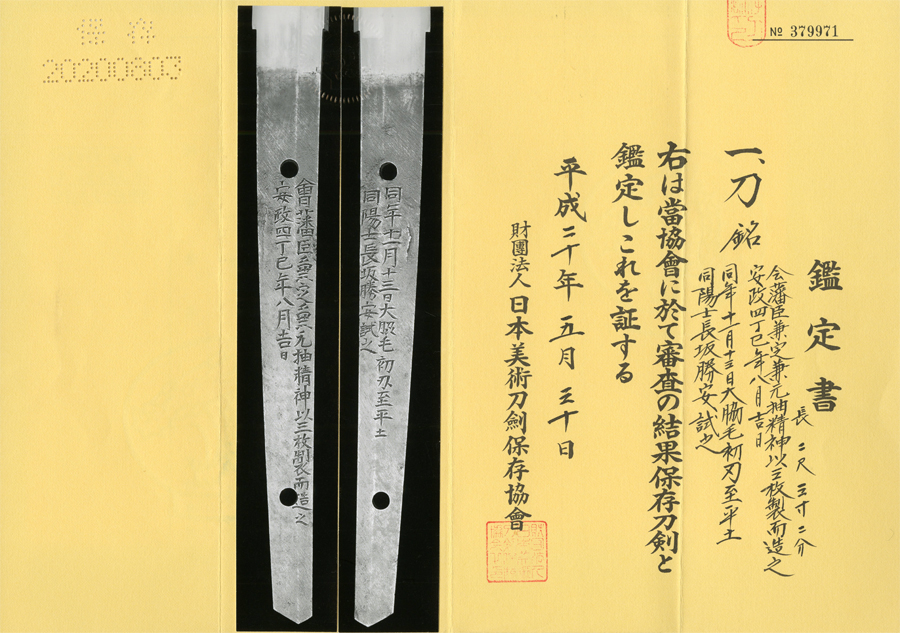 № 379971
鑑定書
一、刀 銘
会藩臣兼定兼元抽精神以三枚製而造之
安政四丁巳年八月吉日
同年十一月十三日大脇毛初刃至平土
同陽士長坂勝安試之
長 二尺三寸二分
右は當協會に於て審査の結果保存刀剣と
鑑定しこれを証する
平成二十年五月三十日
財團法人日本美術刀劍保存協會
同年十一月十三日大脇毛初刃至平土
同陽士長坂勝安試之
會藩臣兼定兼元抽精神以三枚製而造之
安政四丁巳年八月吉日
保存
20200803